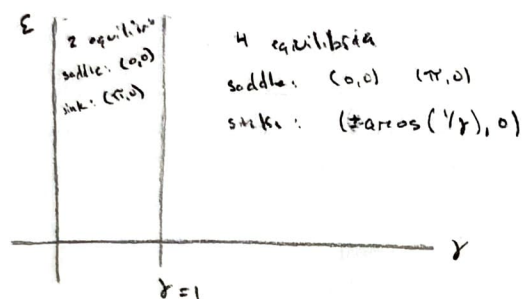 ε
2 equilibria
saddle: (0,0)
sink: (π,0)
4 equilibria
saddle: (0,0) (π,0)
sink: (±arcos(1/γ), 0)
γ
γ = 1